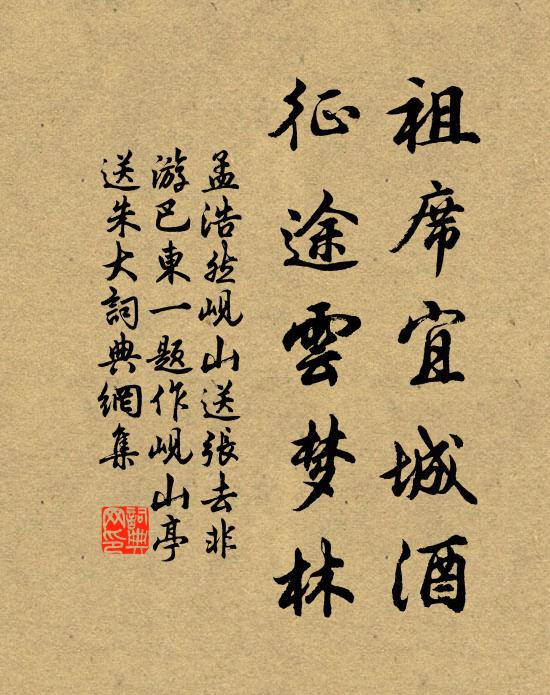 祖席宜城酒
征途雲梦林
孟浩然峴山送張去非
游巴東一題作峴山亭
送朱大詞典網集
詞典
网印